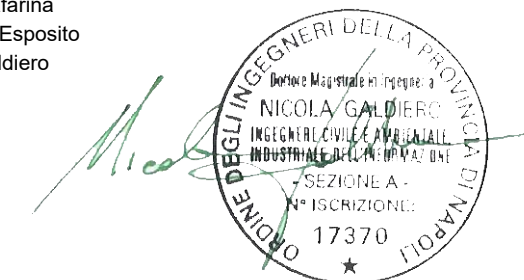 farina
Esposito
ldiero
ORDINE DEGLI INGEGNERI DELLA PROVINCIA DI NAPOLI
Dottore Magistrale in Ingegneria
NICOLA GALDIERO
INGEGNERE CIVILE E AMBIENTALE
INDUSTRIALE DELL'INFORMAZIONE
- SEZIONE A -
N° ISCRIZIONE:
17370
Nicola